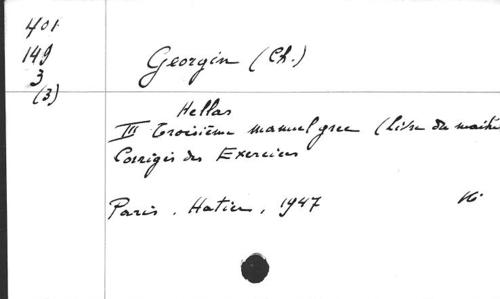 401
149
3
(3)
Georgin (Ch.)
Hellas
III Troisième manuel grec (Livre du maître
Corrigés des Exercices
Paris. Hatier, 1947